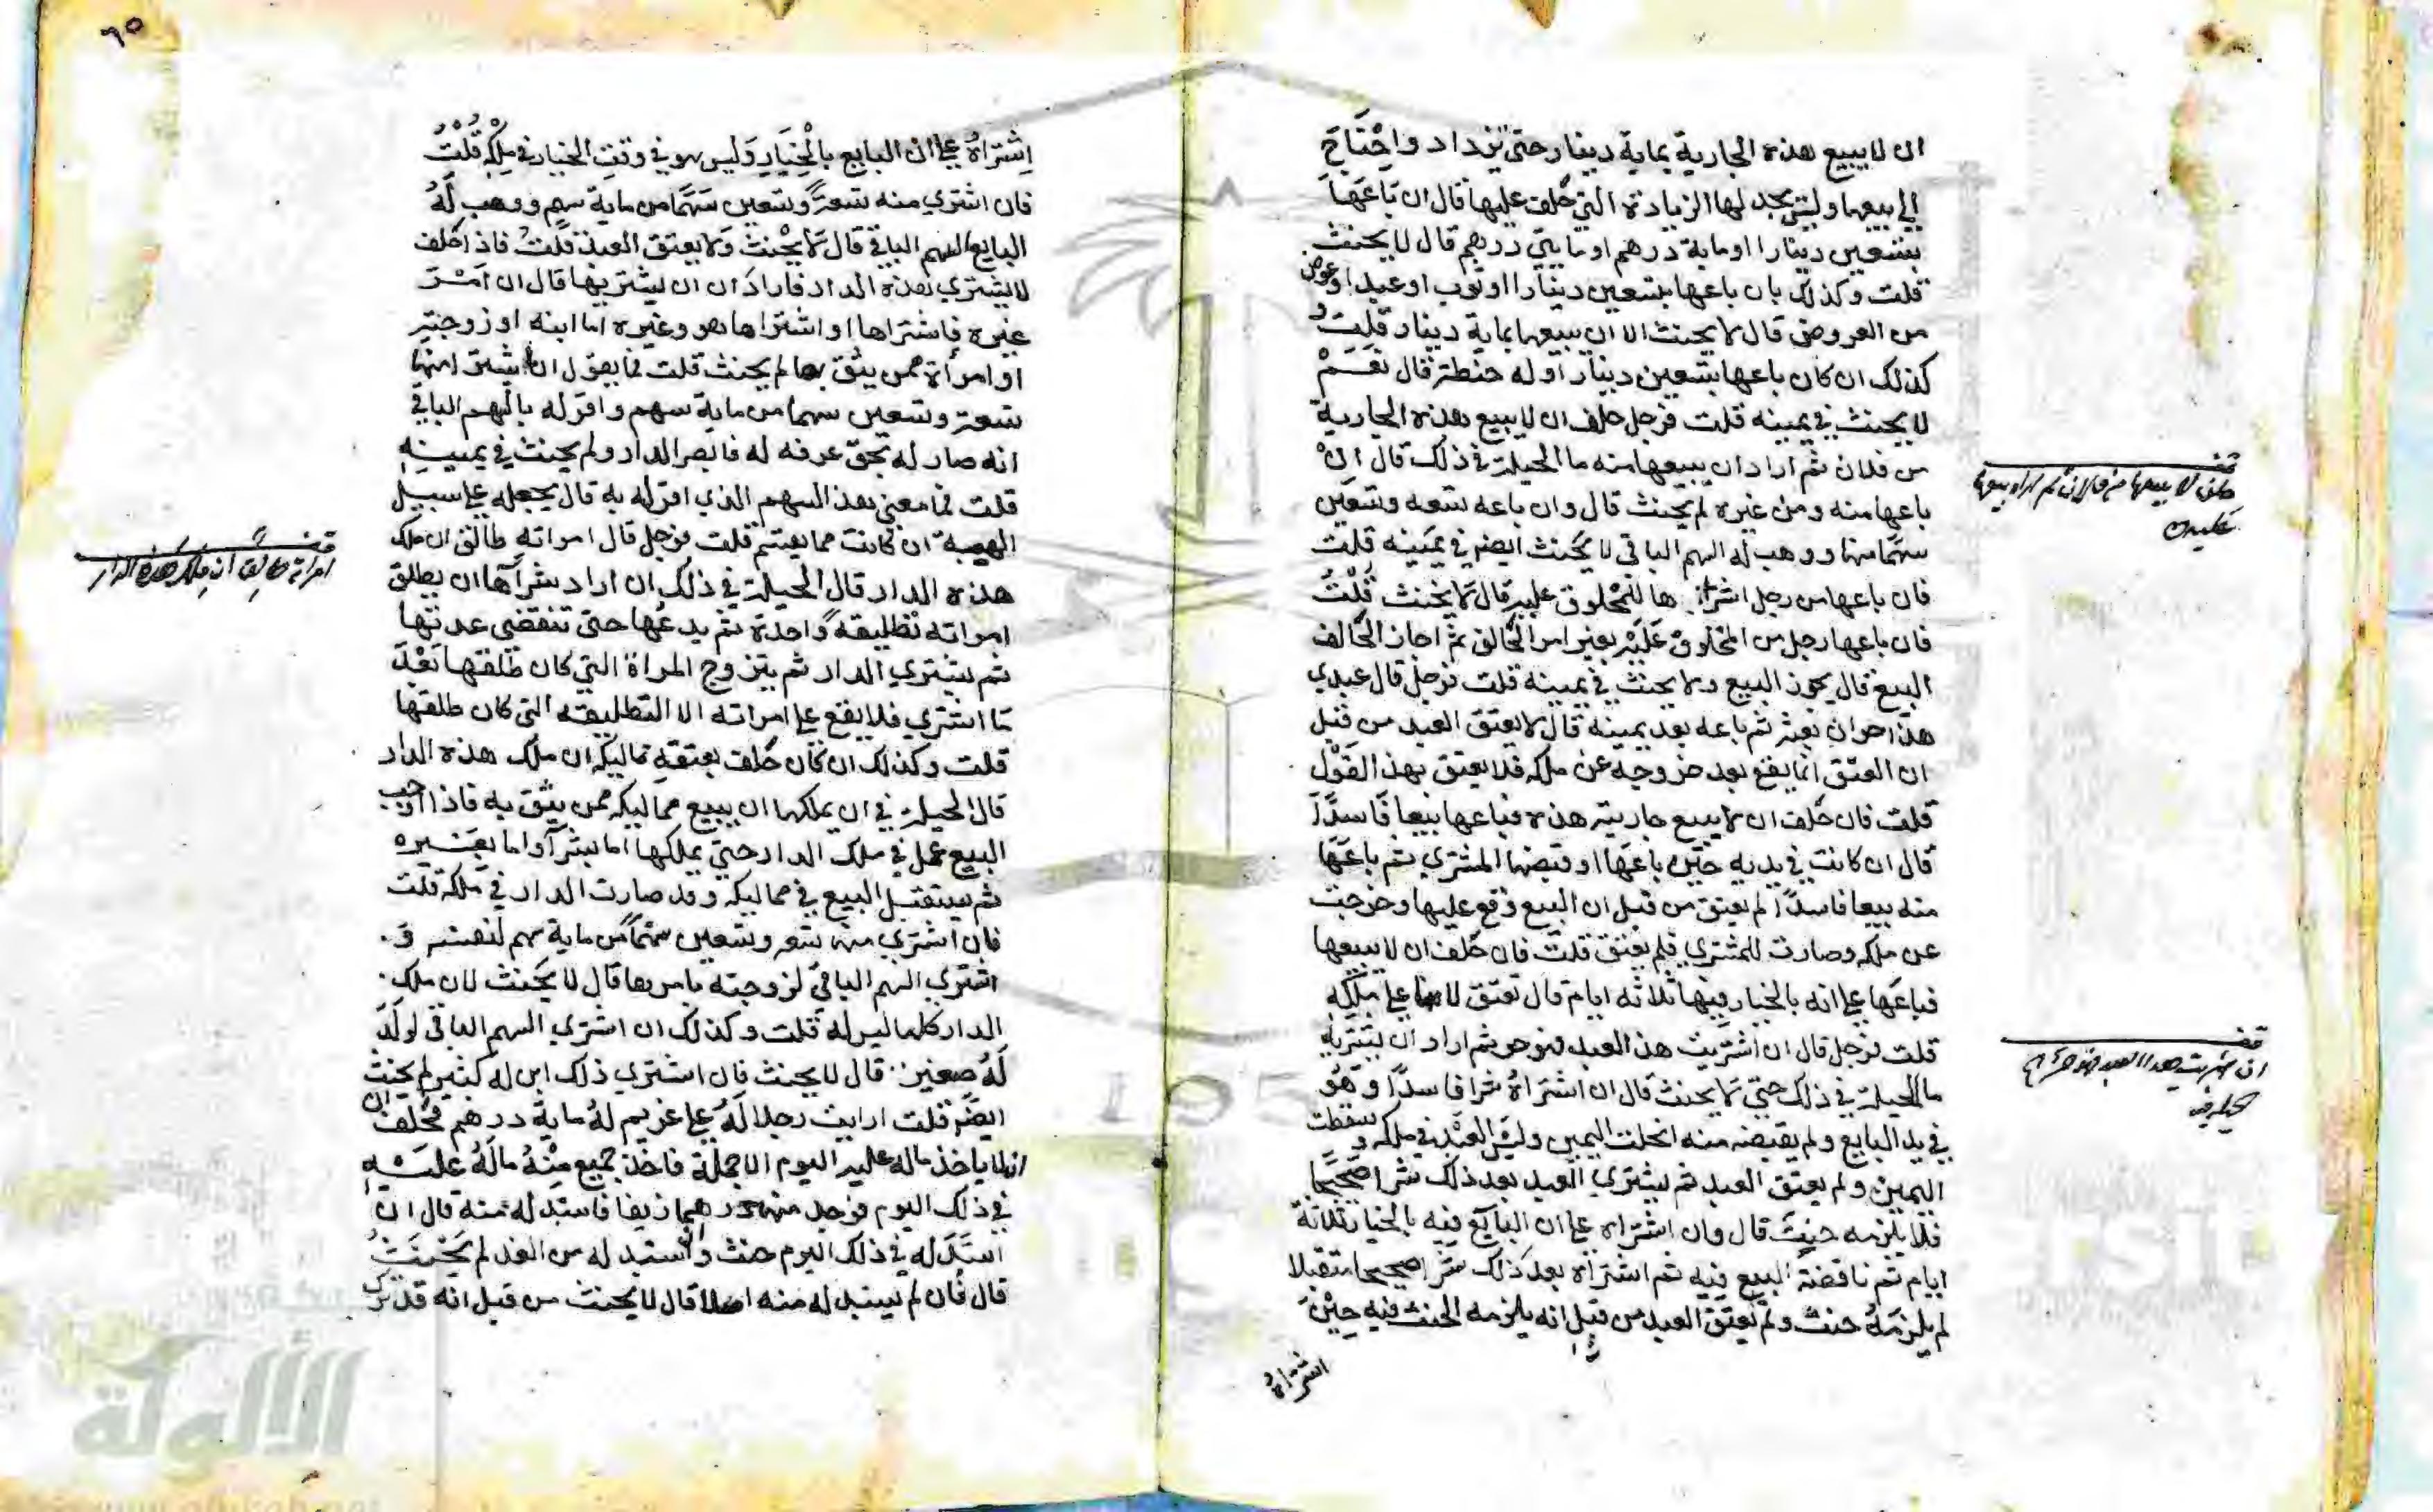 ان لا يبيع هذه الجارية بماية دينار حتى تزداد واحْتَاجَ
الي بيعها وليس يجد لها الزيادة التي حلف عليها قال ان بَاعَهَا
بتسعين دينارا او ماية درهم او مايتي درهم قال لا يحنث
قلت وكذلك بان باعها بتسعين دينارا او ثوب او عبد او عرض
من العروض قال لا يحنث الا ان يبيعها بماية دينار قلت و
كذلك ان كان باعها بتسعين دينار او له حنطة قال نَعَمْ
لا يحنث في يمينه قلت فرجل حلف ان لا يبيع هذه الجارية
من فلان ثم اراد ان يبيعها منه ما الحيلة في ذلك قال انْ
باعها منه ومن غيره لم يحنث قال وان باعه تسعه وتسعين
سهما منها ووهب له السهم الباقي لا يحنث ايضم في يمينه قلت
فان باعها من رجل اشتراها للمحلوف عليه قال لا يحنث قلت
فان باعها رجل من المحلوف عَلَيْهِ بغير امر الحالف ثم اجاز الحَالف
البيع قال يجوز البيع ولا يحنث في يمينه قلت فرجل قال عبدي
هذا حر ان بعته ثم باعه بعد يمينه قال لا يعتق العبد من قبل
ان العتق انما يقع بعد خروجه عن ملكه فلا يعتق بهذا القَوْل
قلت فان حلف ان لا يبيع جاريته هذه فباعها بيعا فَاسداً
قال ان كانت في يديه حين باعَها او قبضها المشتري ثم باعَهَا
منه بيعا فاسداً لم يعتق من قبل ان البيع وقع عليها وخرجت
عن ملكه وصارت للمشتري فلم يعتق قلت فان حلف ان لا يبيعها
فباعَها على انه بالخيار فيها ثلاثه ايام قال تعتق لانها على ملكه
قلت فرجل قال ان اشتريت هذا العبد فهو حر ثم اراد ان يشتريه
ما الحيلة في ذلك حتى لا يحنث قال ان اشتراهُ شرا فاسداً وهُو
في يد البايع ولم يقبضه منه انحلت اليمين وليس العبد في ملكه وسقطت
اليمين ولم يعتق العبد ثم يشتري العبد بعد ذلك شرا صحيحا
فلا يلزمه حنث قال وان اشتراه على ان البايع فيه بالخيار ثلاثة
ايام ثم ناقضه البيع فيه ثم اشتراه بعد ذلك شرا صحيحا مستقبلا
لم يلزمهُ حنث ولم يعتق العبد من قبل انه يلزمه الحنث فيه حِيْنَ
اشتراهُ
قف
حلف لا يبيعها من فلان ثم اراد بيعها
قف
ان اشتريت هذا العبد فهو حر
٦٥
اِشتراهُ على ان البايع بالْخِيَارِ وَليس هو في وقت الخيار في مِلْكِه قُلْتُ
فان اشتري منه تسعة وتسعين سَهمًا من ماية سهم ووهب لَهُ
البايع السهم الباقي قال لا يحْنث وَلا يعتق العبد قلتُ فاذا حلف
لا يشتري هذه الدار فارادَ ان ان يشتريها قال ان اَمَرَ
غيره فاشتراها او اشتراها هو وغيره اما ابنه او زوجته
او امرأة ممن يثق بها لم يحنث قلت فما يقول ان اشترا منها
تسعة وتسعين سهما من ماية سهم واقر له بالسهم الباقي
انه صار له بحق عرفه له فانبصر الدار ولم يحنث في يمينهِ
قلت فما معني هذا السهم الذي اقر له به قال يجعله على سبيل
الهبة ان كانت مما يقسم قلت فرجل قال امراته طالق ان ملك
هذه الدار قال الحيلة في ذلك ان اراد شرآها ان يطلق
امراته تطليقةً واحدة ثم يدعُها حتى تنقضي عدتها
ثم يشتري الدار ثم يتزوج المراة التي كان طلقها بَعْدَ
مَا اشتري فلا يقع على امراته الا التطليقه التي كان طلقها
قلت وكذلك ان كان حَلف بعتقه مماليكه ان ملك هذه الدار
قال الحيلة في ان يملكها ان يبيع مماليكه ممن يثق به فاذا اوجب
البيع عمل في ملك الدار حتى يملكها اما بشرآ واما بغيره
ثم يستقبل البيع في مماليكه وقد صارت الدار في ملكه قلت
فان اشتري منها تسعه وتسعين سهمًا من ماية سهم لنفسه وَ
اشتري السهم الباقي لزوجته بامرها قال لا يحنث لان ملك
الدار كلها ليس له قلت وكذلك ان اشتري السهم الباقي لولَد
لَهُ صغير قال لا يحنث فان اشتري ذلك ابن له كبير لم يحنث
ايضم قلت ارايت رجلا لَهُ على غريم لهُ ماية درهم فحلف ان
لا ياخذ ماله عليه اليوم الا جملة فاخذ جميع مِنْهُ مَالَهُ عَليهِ
في ذلك اليوم فوجد منها درهما زيفا فاستبدله منه قال ان
استبدله في ذلك اليوم حنث وان استبدله من الغد لم يَحْنَثْ
قال فان لم يستبدله منه اصلا قال لا يحنث من قبل انه قد ترك
قف
امراته طالق ان ملك هذه الدار